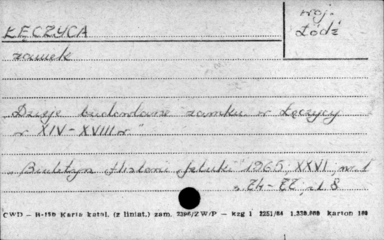 ŁĘCZYCA
woj.
Łódź
zamek
Dzieje budowlane zamku w Łęczycy
w XIV-XVIII w.
"Biuletyn Historii Sztuki" 1965, XXVI, nr 1
s. 54 - 55, il. 8
CWD – B-15b Karta katal. (z liniat.) zam. /ZW/P – Rzg 1 1251/68 karton 180